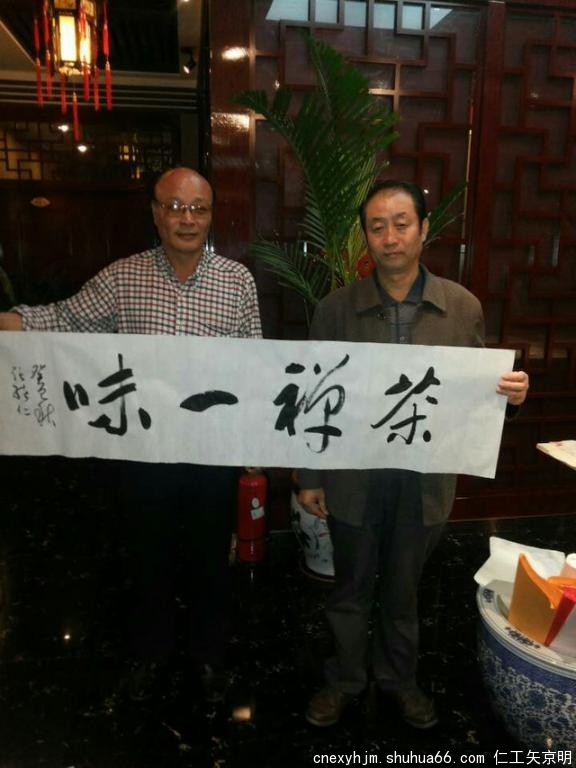 茶禅一味
癸巳秋
cnexyhjm.shuhua66.com 仁工矢京明